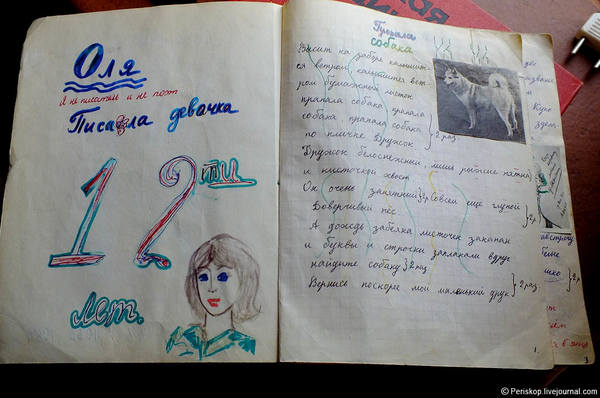 Оля
Я не писатель и не поэт
Писала девочка
12ти
лет.
Пропала
собака
Висит на заборе колышит-
ся ветром колышится вет-
ром бумажный листок
пропала собака пропала
собака пропала собака
по кличке Дружок } 2 раз
Дружок белоснежный, лишь рыжие пятна
и кисточкой хвост
Он очень занятный }2р Совсем ещё глупый
Доверчивый пёс } 2р
А дождь забелка листочек закапан
и буквы и строчки заплакали вдруг
найдите собаку }2 раз
Вернись поскоре мой маленький друг } 2 раз
1
© Periskop.livejournal.com